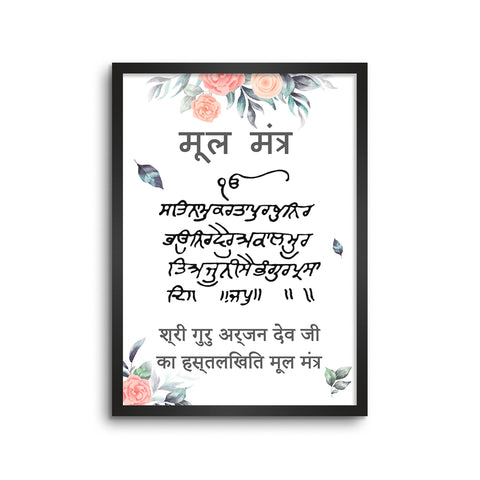 मूल मंत्र
ੴ
ਸਤਿਨਾਮੁਕਰਤਾਪੁਰਖੁਨਿਰ
ਭਉਨਿਰਵੈਰੁਅਕਾਲਮੂਰ
ਤਿਅਜੂਨੀਸੈਭੰਗੁਰਪ੍ਰਸਾ
ਦਿ॥ ॥ਜਪੁ॥ ॥ ॥
श्री गुरु अर्जन देव जी
का हस्तलखिति मूल मंत्र